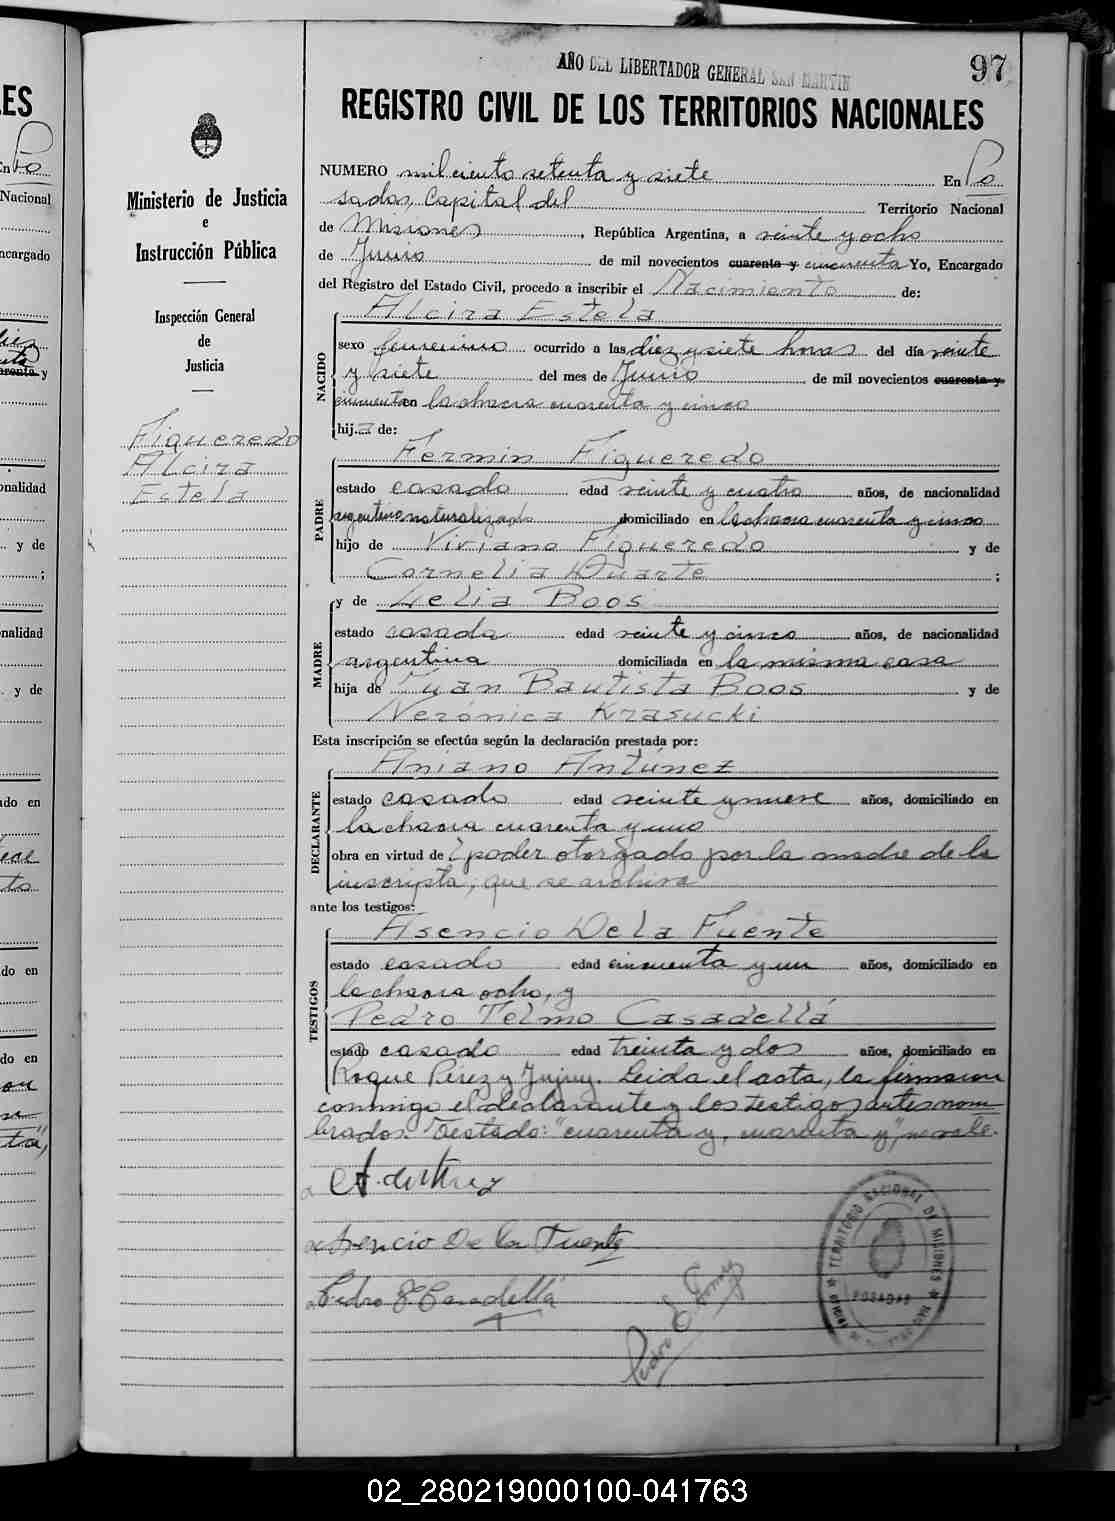 AÑO DEL LIBERTADOR GENERAL SAN MARTIN
97
REGISTRO CIVIL DE LOS TERRITORIOS NACIONALES
Ministerio de Justicia
e
Instrucción Pública
Inspección General
de
Justicia
Figueredo
Alcira
Estela
NUMERO mil ciento setenta y siete En Po
sadas, Capital del Territorio Nacional
de Misiones, República Argentina, a veinte y ocho
de Junio de mil novecientos cuarenta y cincuenta Yo, Encargado
del Registro del Estado Civil, procedo a inscribir el Nacimiento de:
Alcira Estela
NACIDO
sexo femenino ocurrido a las diez y siete horas del día veinte
y siete del mes de Junio de mil novecientos cuarenta y
cincuenta en la chacra cuarenta y cinco
hija de:
Fermin Figueredo
PADRE
estado casado edad veinte y cuatro años, de nacionalidad
argentino naturalizado domiciliado en la chacra cuarenta y cinco
hijo de Viviano Figueredo y de
Cornelia Duarte;
y de Lelia Boos
MADRE
estado casada edad veinte y cinco años, de nacionalidad
argentina domiciliada en la misma casa
hija de Juan Bautista Boos y de
Verónica Krasucki
Esta inscripción se efectúa según la declaración prestada por:
Aniano Antúnez
DECLARANTE
estado casado edad veinte y nueve años, domiciliado en
la chacra cuarenta y uno
obra en virtud de poder otorgado por la madre de la
inscripta, que se archiva
ante los testigos:
Asencio De la Fuente
TESTIGOS
estado casado edad cincuenta y un años, domiciliado en
la chacra ocho, y
Pedro Telmo Casadellá
estado casado edad treinta y dos años, domiciliado en
Roque Pérez y Jujuy. Leida el acta, la firmaron
conmigo el declarante y los testigos antes nom
brados. Testado: "cuarenta y, cuarenta y", no vale.
A. Antunez
Asencio De la Fuente
Pedro T Casadellá
Pedro Gomez
TERRITORIO NACIONAL DE MISIONES
POSADAS
02_280219000100-041763